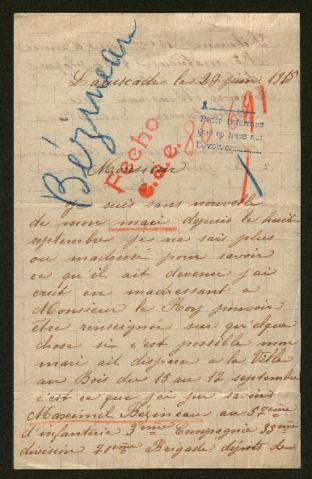 Laruscade le 29 juin 1915
Bézineau
Fecho
e.s.e.
Monsieur
je suis sans nouvelle
de mon mari depuis le huit
septembre je ne sais plus
ou madressé pour savoir
ce qu'il ait devenue j'ai
crut en madressant a
Monsieur le Roy pouvoir
être renseignée sur quelque
chose si c'est possible mon
mari ait disparu a la Ville
au Bois du 15 au 17 septembre
c'est ce que j'ai pu savoir
Maxemil Bezineau au 57eme
d'infanterie 3eme Compagnie 35eme
division 70eme Brigade dépots de